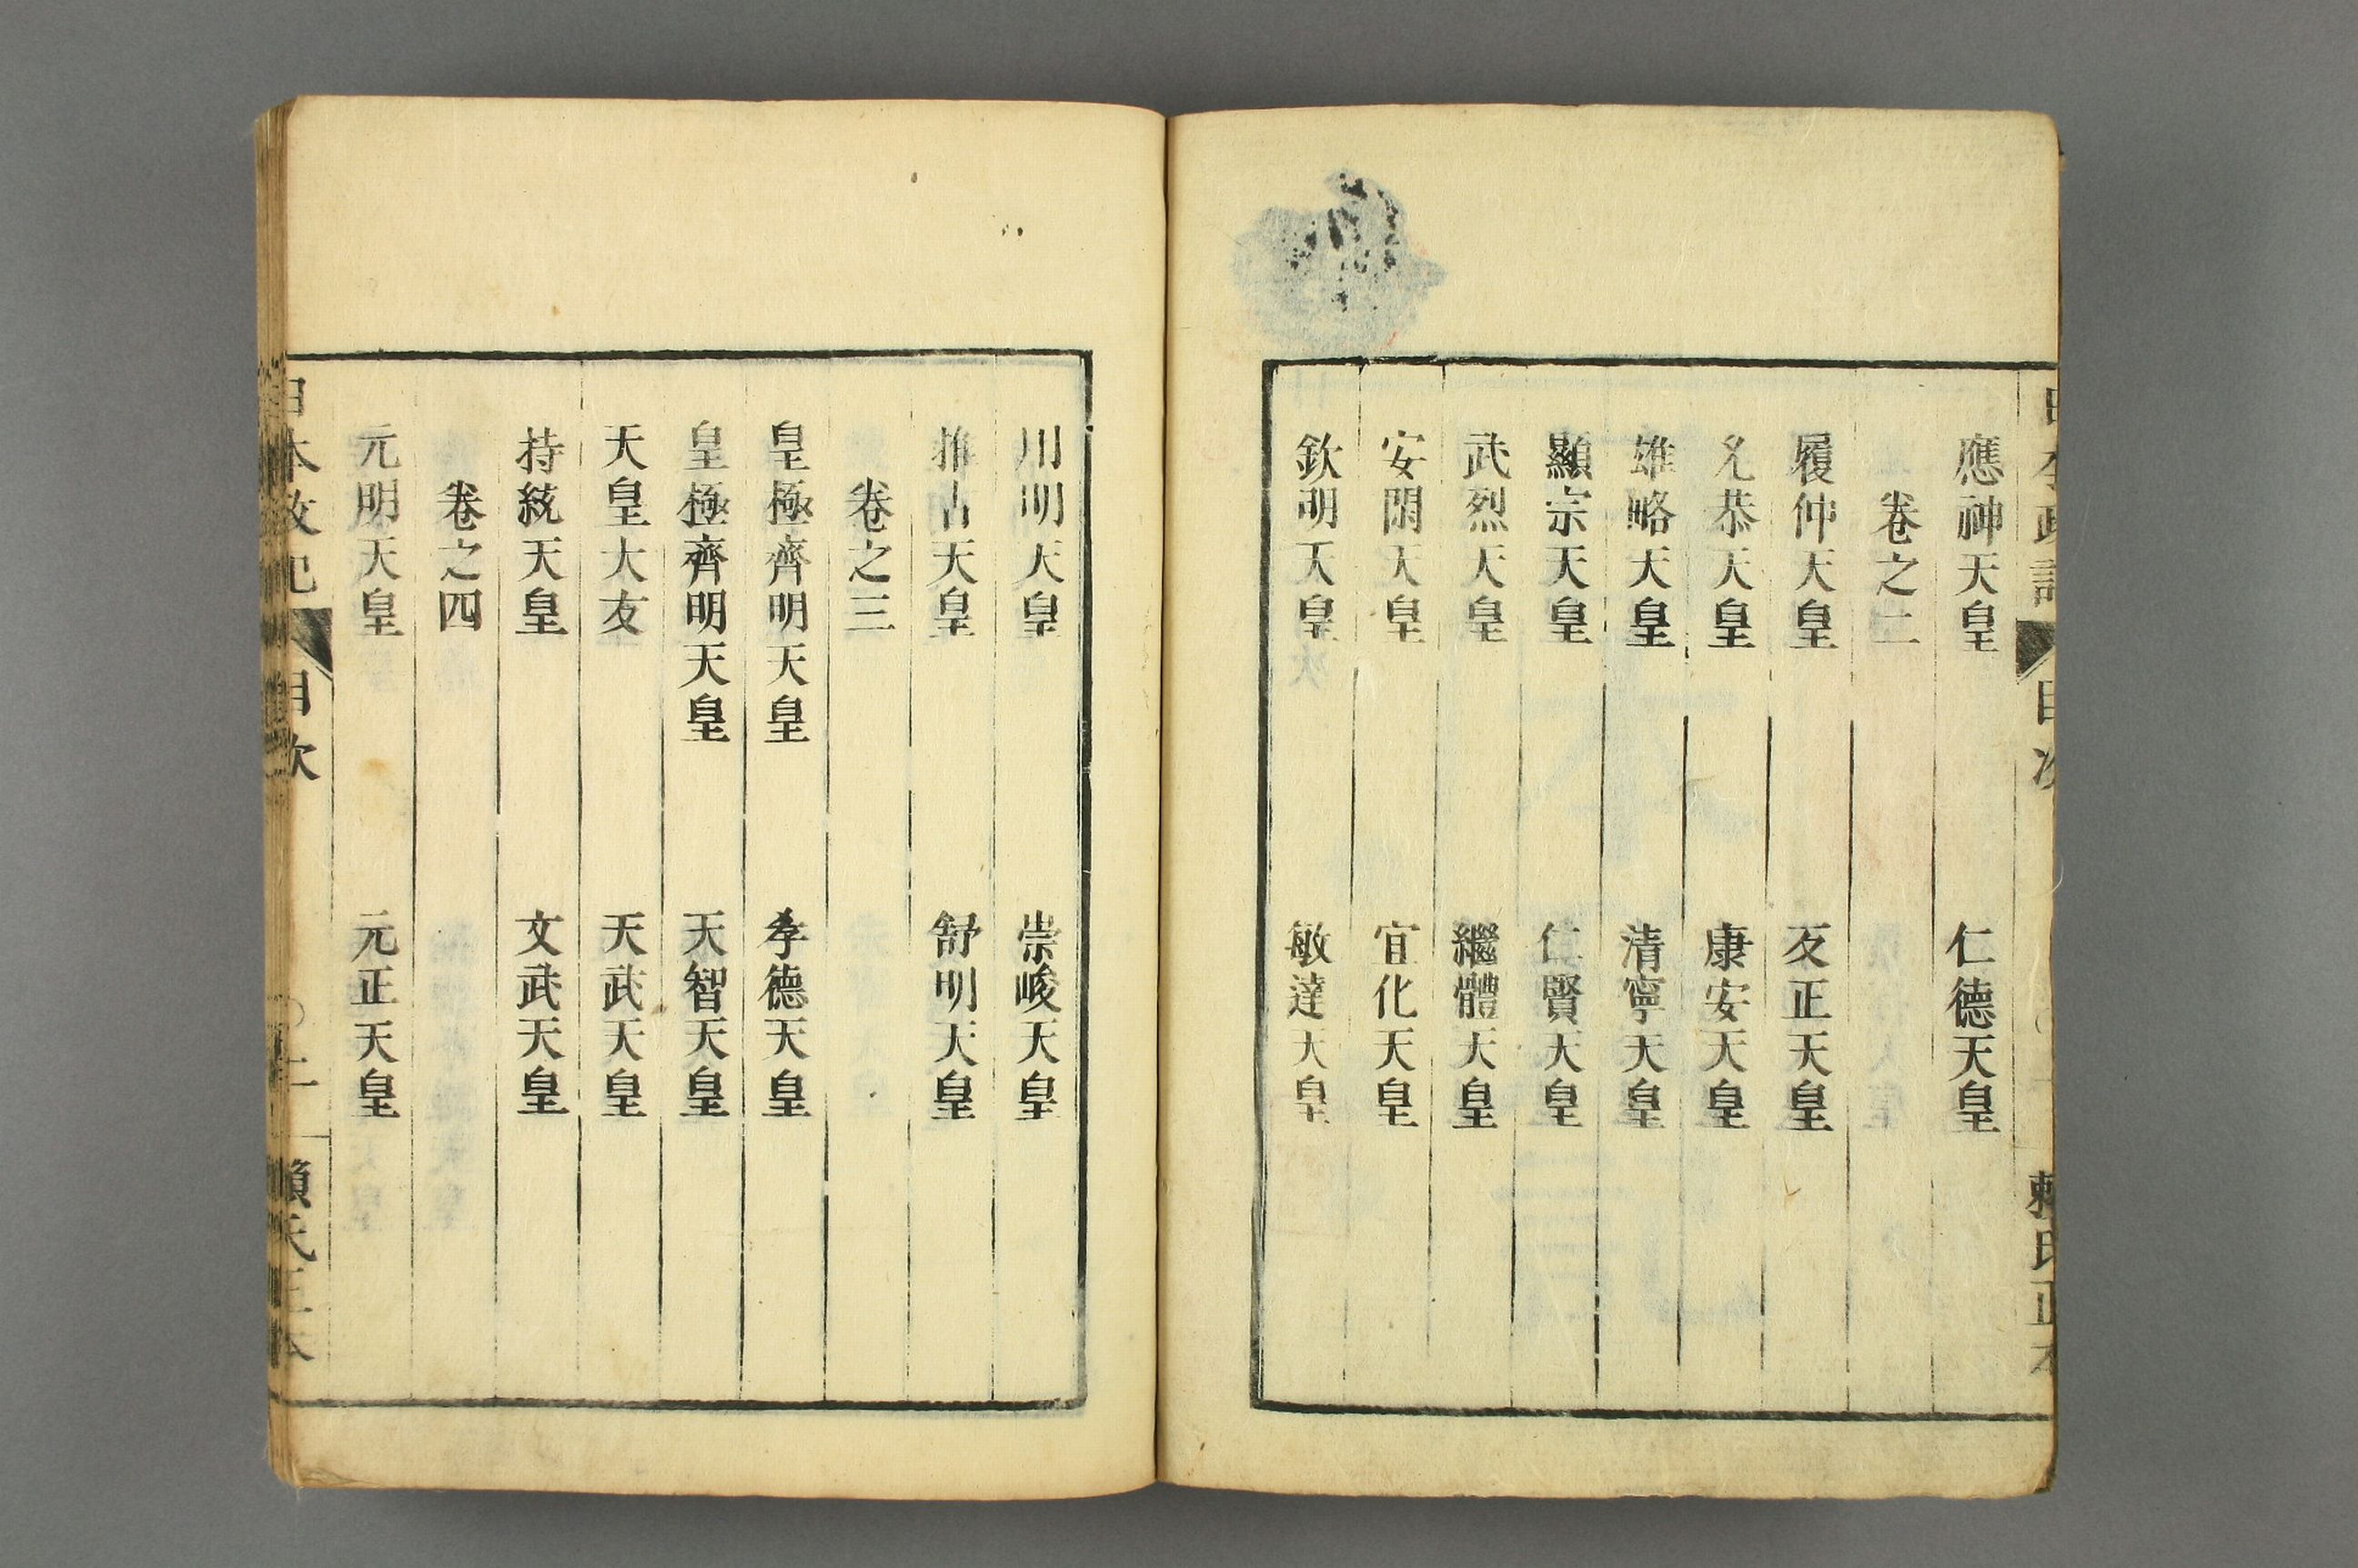 應神天皇 仁德天皇
卷之二
履仲天皇 反正天皇
允恭天皇 康安天皇
雄略天皇 清寧天皇
顯宗天皇 仁賢天皇
武烈天皇 繼體天皇
安閑天皇 宜化天皇
欽明天皇 敏達天皇
用明天皇 崇峻天皇
推古天皇 舒明天皇
卷之三
皇極齊明天皇 孝德天皇
皇極齊明天皇 天智天皇
天皇大友 天武天皇
持統天皇 文武天皇
卷之四
元明天皇 元正天皇
日本政記 目次 二 賴氏正本